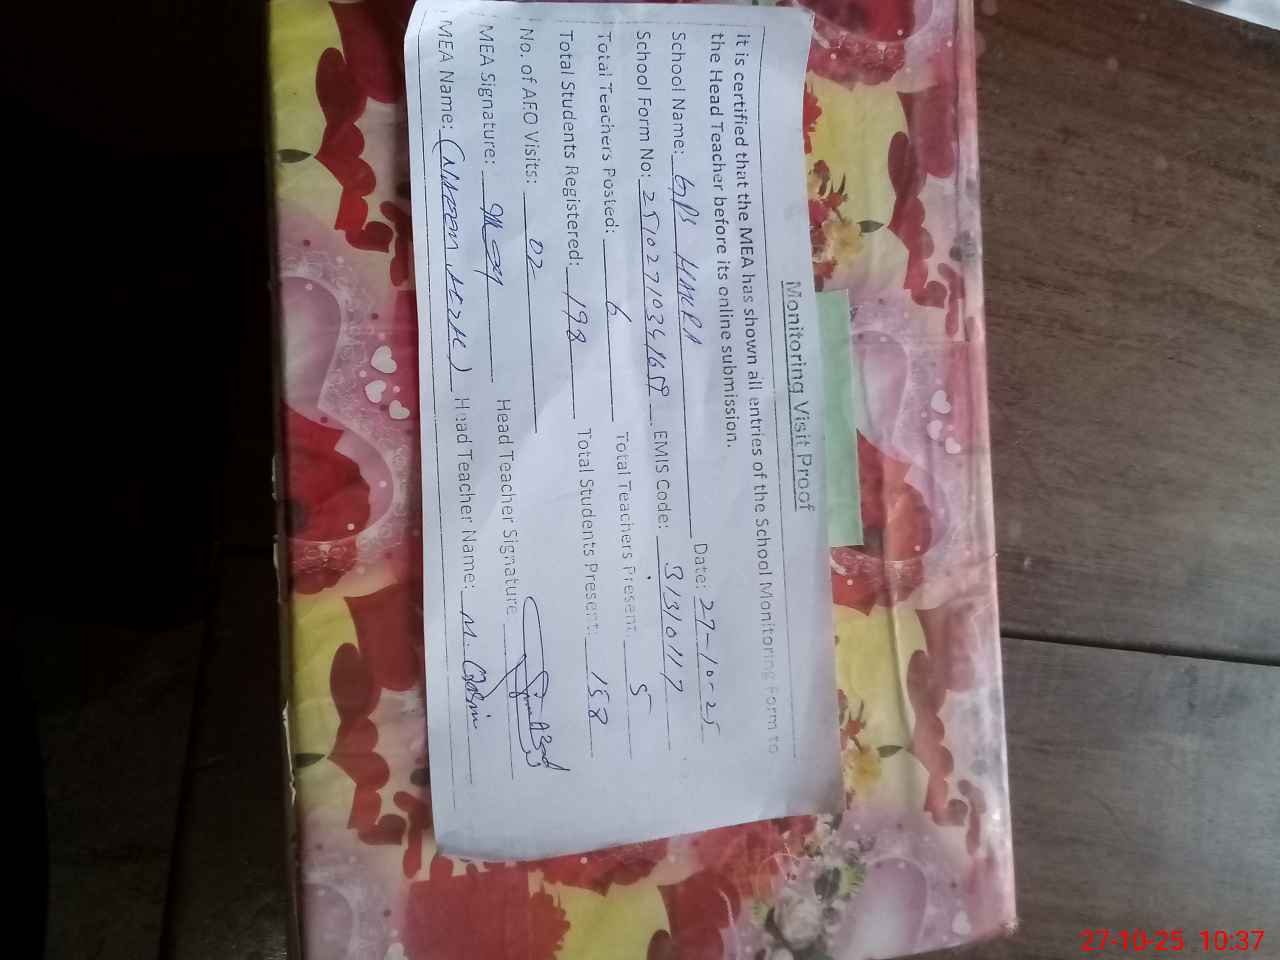 Monitoring Visit Proof
It is certified that the MEA has shown all entries of the School Monitoring Form to
the Head Teacher before its online submission.
School Name: GPS Date: 27-10-25
School Form No: 25102710341659 EMIS Code: 31310117
Total Teachers Posted: 6 Total Teachers Present: 5
Total Students Registered: 198 Total Students Present: 158
No. of AEO Visits: 02
MEA Signature: Head Teacher Signature
MEA Name: Head Teacher Name: M.
27-10-25 10:37